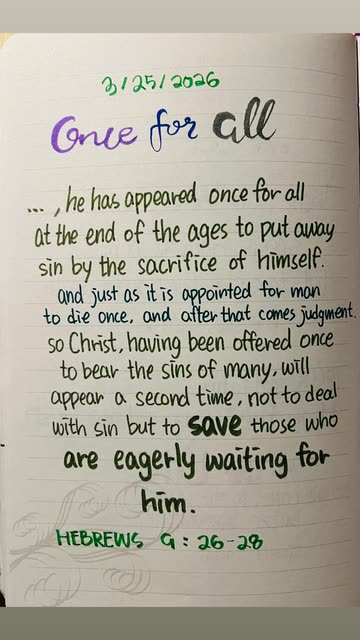 3/25/2026
Once for all
... , he has appeared once for all
at the end of the ages to put away
sin by the sacrifice of himself.
and just as it is appointed for man
to die once, and after that comes judgment.
so Christ, having been offered once
to bear the sins of many, will
appear a second time, not to deal
with sin but to save those who
are eagerly waiting for
him.
HEBREWS 9 : 26-28